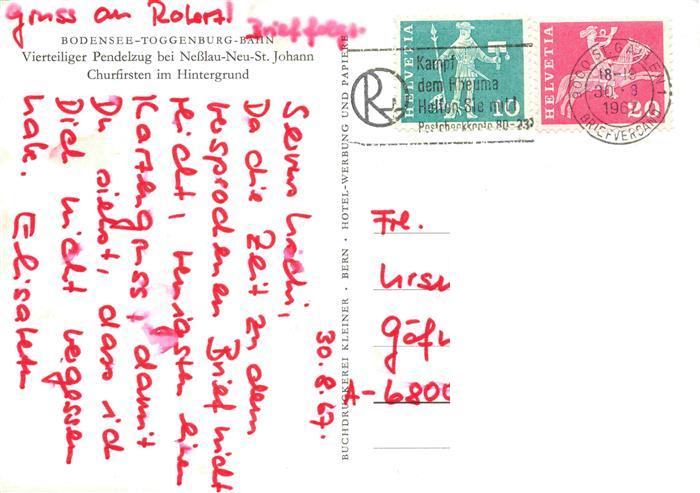 Gruss an Robert!
Brief folgt.
BODENSEE–TOGGENBURG–BAHN
Vierteiliger Pendelzug bei Neßlau-Neu-St. Johann
Churfirsten im Hintergrund
30.8.67.
Servus Uschi,
Da die Zeit zu dem
besprochenen Brief nicht
reicht, wenigsten einen
Kartengruss, damit
Du siehst, dass ich
Dich nicht vegessen
hab. Elisabeth
BUCHDRUCKEREI KLEINER · BERN · HOTEL-WERBUNG UND PAPIERE
HELVETIA
10
HELVETIA
20
R
Kampf
dem Rheuma
Helfen Sie mit!
Postcheckkonto 80-23
9000 ST. GALLEN 1
18-
30. 8
196
BRIEFVERSAND
Frl.
Ursu
Göfi
A-6800